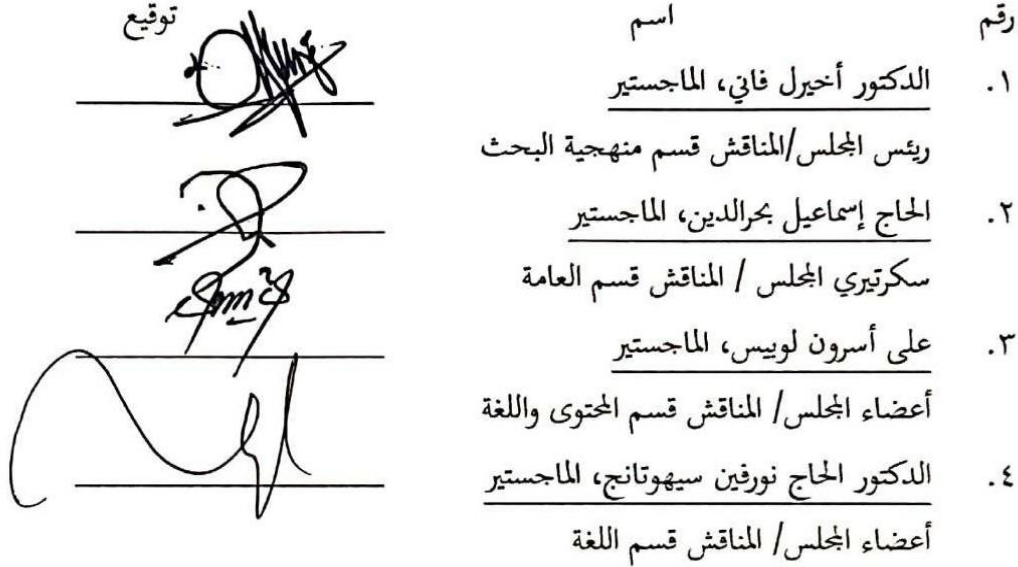 رقم اسم توقيع
١. الدكتور أخيرل فاني، الماجستير
ريئس المجلس/المناقش قسم منهجية البحث
٢. الحاج إسماعيل بحرالدين، الماجستير
سكرتيري المجلس / المناقش قسم العامة
٣. على أسرون لوبيس، الماجستير
أعضاء المجلس/ المناقش قسم المحتوى واللغة
٤. الدكتور الحاج نورفين سيهوتانج، الماجستير
أعضاء المجلس/ المناقش قسم اللغة